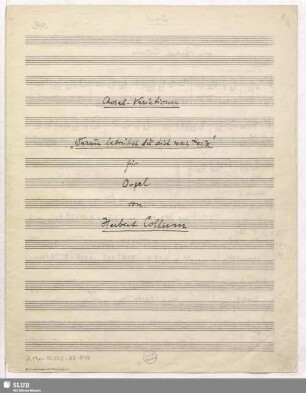 Choral-Variationen
„Warum betrübst du dich mein Herz"
für
Orgel
von
Herbert Collum
SLUB
Wir führen Wissen.